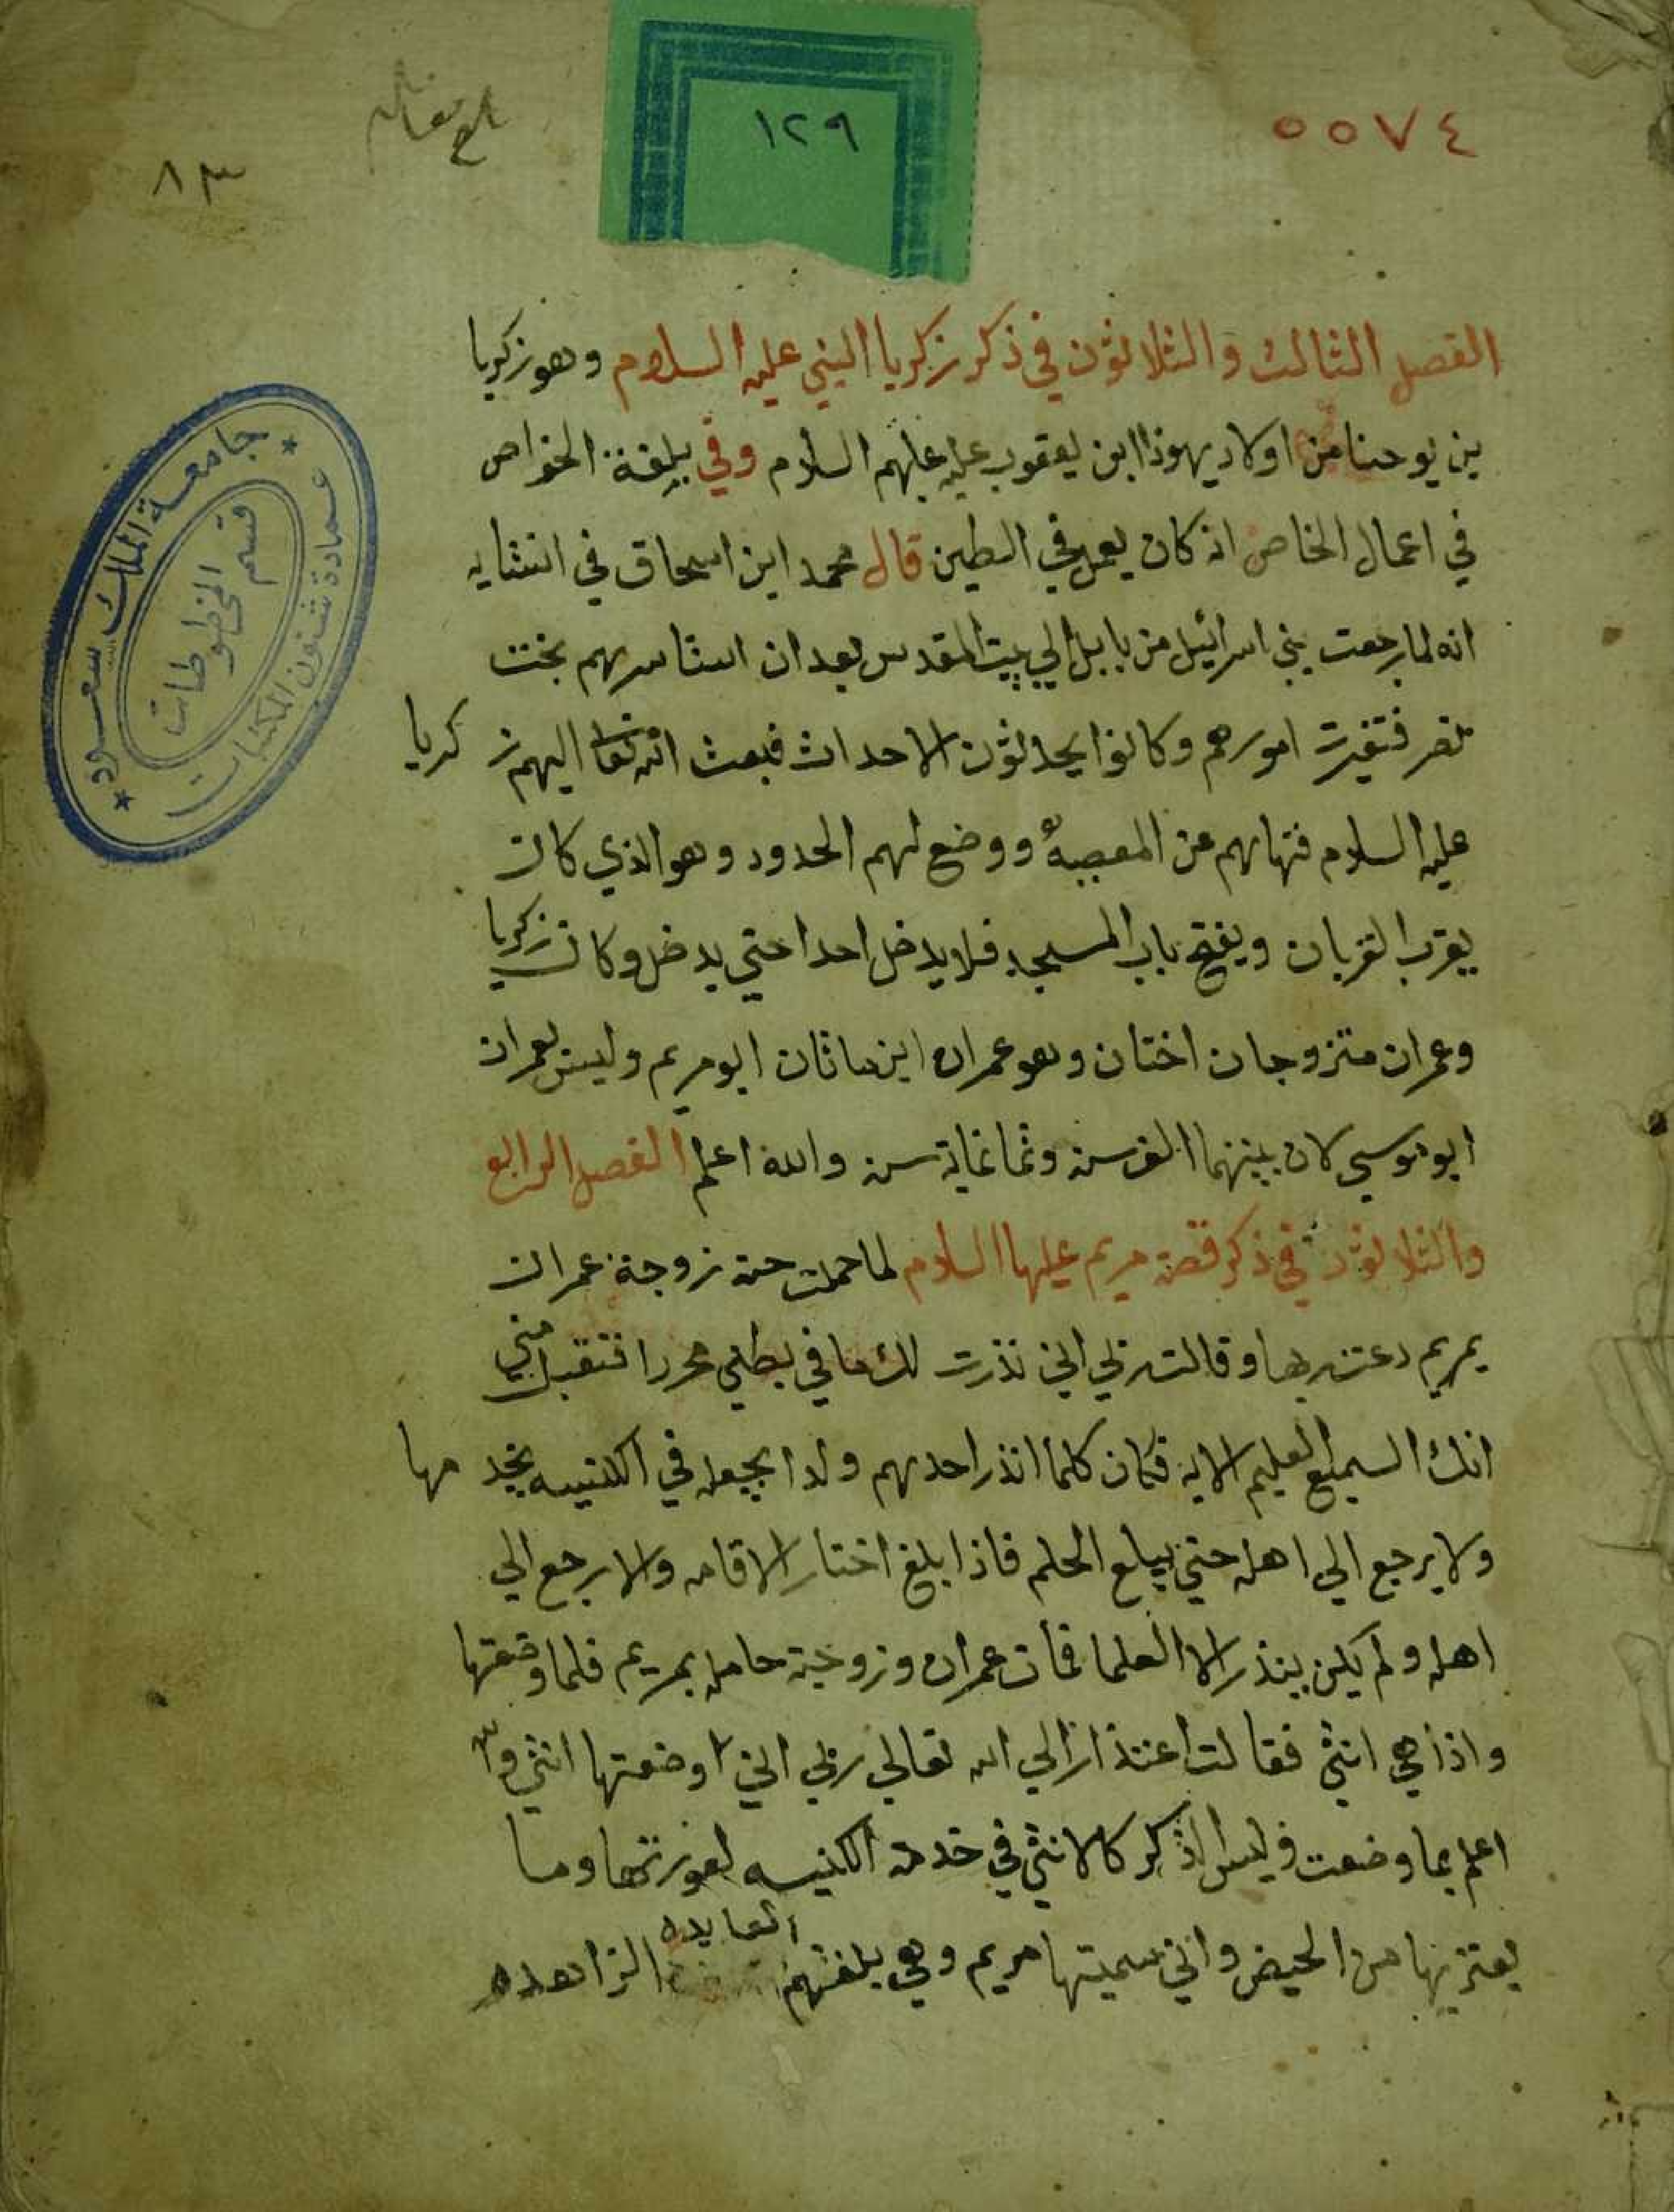 ٥٥٧٤
١٢٩
٨٣
جامعة الملك سعود
عمادة شئون المكتبات
قسم المخطوطات
الفصل الثالث والثلاثون في ذكر زكريا النبي عليه السلام وهو زكريا
بن يوحنا من اولاد يهوذا ابن يعقوب عليه عليهم السلام وفي بلغة الخواص
في اعمال الخاص انه كان يعمل في الطين قال محمد ابن اسحاق في
انه لما رجعت بني اسرائيل من بابل الي بيت المقدس بعد ان استاسرهم بخت
نصر فتغيرت امورهم وكانوا يحدثون الاحداث فبعث الله تعا اليهم زكريا
عليه السلام فنهاهم عن المعصيه ووضع لهم الحدود وهو الذي كان
يقرب القربان ويفتح باب المسجد فلا يدخل احدا حتي يدخل وكان زكريا
وعمران متزوجان اختان وهو عمران ابن ماثان ابو مريم وليس لعمران
ابو موسي لان بينهما الف سنه وثمانماية سنه والله اعلم الفصل الرابع
والثلاثون في ذكر قصة مريم عليها السلام لما حملت حنه زوجة عمران
بمريم دعت ربها وقالت ربي اني نذرت لك ما في بطني محررا فتقبل مني
انك السميع العليم الايه فكان كلما انذر احدهم ولدا يجعله في الكنيسه يخدمها
ولا يرجع الي اهله حتي يبلغ الحلم فاذا بلغ اختار الاقامه والا رجع الي
اهله ولم يكن ينذر الا الغلما فمات عمران وزوجته حامله بمريم فلما وضعتها
واذا هي انثي فقالت اعتذارا الي الله تعالي ربي اني وضعتها انثي والله
اعلم بما وضعت وليس الذكر كالانثي في خدمة الكنيسه لعورتها وما
يعتريها من الحيض واني سميتها مريم وهي بلغتهم العابده الزاهده